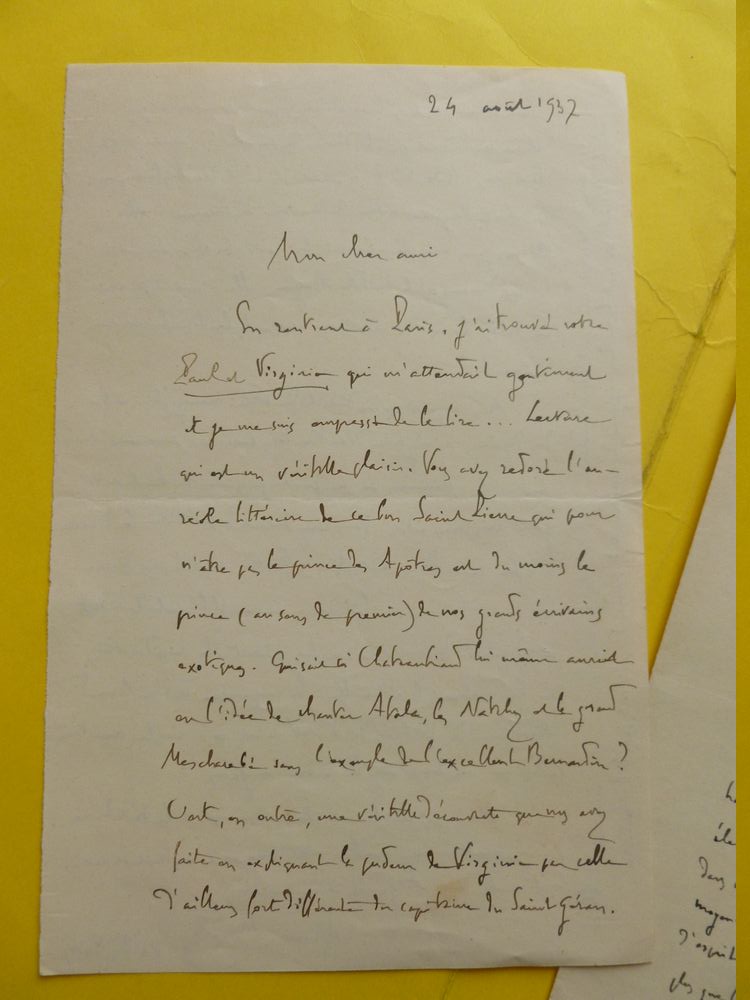 24 août 1937
Mon cher ami
En rentrant à Paris, j'ai trouvé votre
Paul et Virginie qui m'attendait gentiment
et je me suis empressé de le lire... Lecture
qui est un véritable plaisir. Vous avez redoré l'au-
réole littéraire de ce bon Saint Pierre qui pour
n'être pas le prince des Apôtres est du moins le
prince (au sens de premier) de nos grands écrivains
exotiques. Qui sait si Chateaubriand lui même aurait
eu l'idée de chanter Atala, les Natchez et le grand
Meschacebé sans l'exemple de l'excellent Bernardin ?
C'est, en outre, une véritable découverte que vous avez
faite en expliquant la pudeur de Virginie par celle
d'ailleurs fort différente du capitaine du Saint Géran.
dans
moyen
d'esprit
plus que